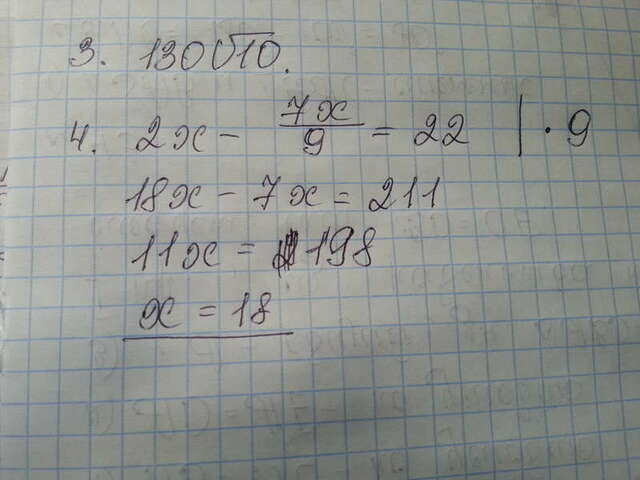 3. 130√10.
4. 2x - 7x/9 = 22 | · 9
18x - 7x = 211
11x = 198
x = 18